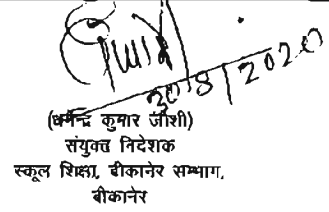 30/8/2020
(धर्मेन्द्र कुमार जोशी)
संयुक्त निदेशक
स्कूल शिक्षा, बीकानेर सम्भाग,
बीकानेर